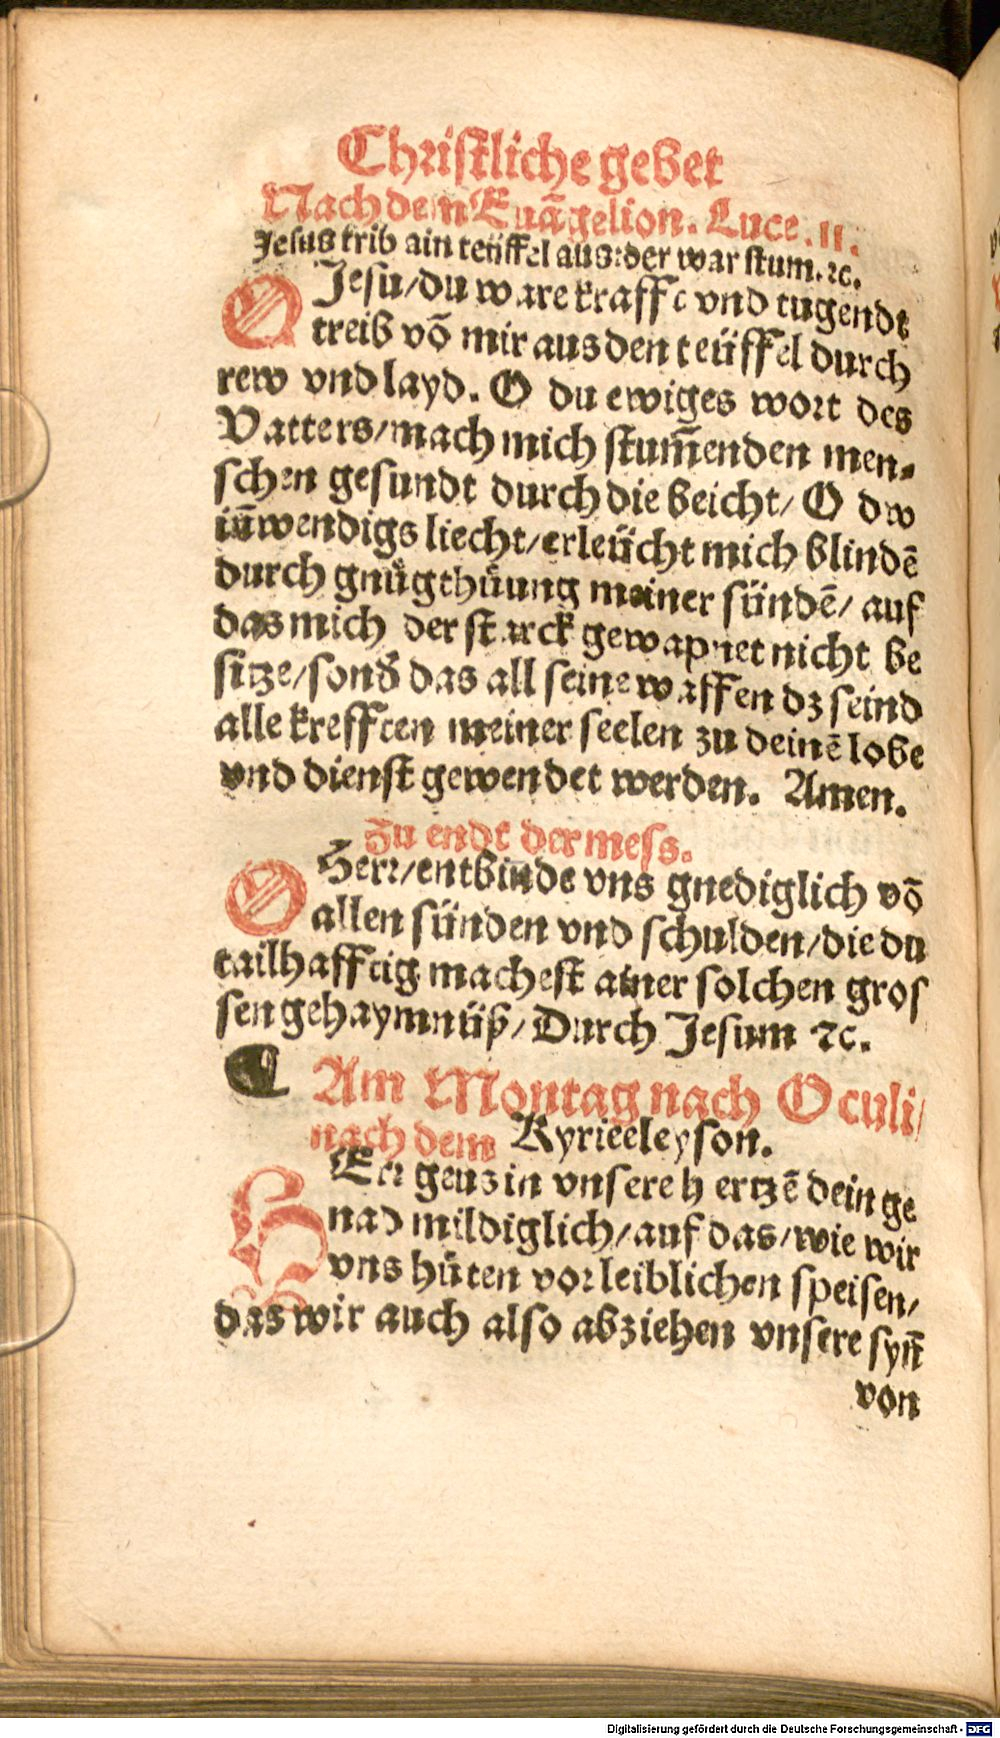 Christliche gebet
Nach dem Euãgelion. Luce. 11.
Jesus trib ain teüffel aus: der war stum. ꝛc.
O Jesu/ du ware krafft vnd tugendt
treib võ mir aus den teüffel durch
rew vnd layd. O du ewiges wort des
Vatters/ mach mich stum̃enden men⸗
schen gesundt durch die beicht/ O dw
iñwendigs liecht/ erleücht mich blindẽ
durch gnůgthůung meiner sündẽ/ auf
das mich der starck gewapnet nicht be
sitze/ sonď das all seine waffen dz seind
alle krefften meiner seelen zu deinẽ lobe
vnd dienst gewendet werden. Amen.
Zu endt der mess.
O Herr/ entbiñde vns gnediglich võ
allen sünden vnd schulden/ die du
tailhafftig machest ainer solchen gros
sen gehaymnüß/ Durch Jesum ꝛc.
¶ Am Montag nach Oculi/
nach dem Kyrieeleyson.
HErr geuz in vnsere hertzẽ dein ge
nad mildiglich/ auf das/ wie wir
vns hüten vor leiblichen speisen/
das wir auch also abziehen vnsere syñ
von
Digitalisierung gefördert durch die Deutsche Forschungsgemeinschaft - DFG